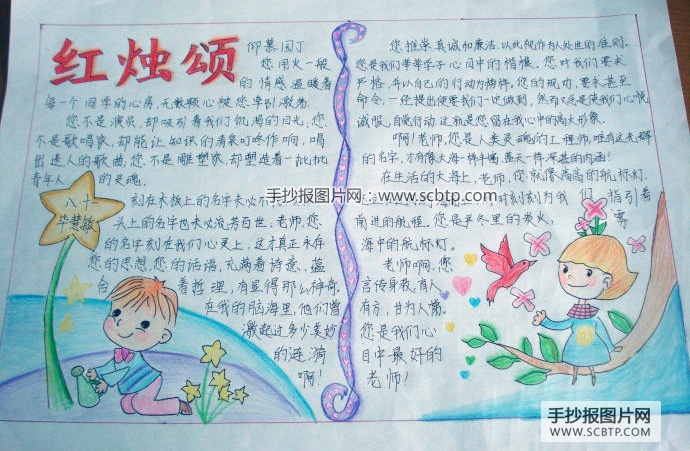 红烛颂
仰慕园丁
您用火一般
的情感温暖着
每一个同学的心房,无数颗心被您牵引激荡
您不是演员,却吸引着我们饥渴的目光,您
不是歌唱家,却能让知识的清泉叮咚作响,唱
出迷人的歌曲,您不是雕塑家,却塑造着一批批
青年人的灵魂。
八十一
毕慧敏
刻在木板上的名字未必不
头上的名字也未必流芳百世,老师,您
的名字刻在我们心灵上,这才真正永存
您的思想,您的话语,充满着诗意,蕴
含着哲理,有显得那么神奇。
在我的脑海里,他们曾
激起过多少美妙
的涟漪
啊!
您推崇真诚和廉洁,以此视作为人处世的准则。
您是我们莘莘学子心目中的楷模。您对我们要求
严格,并以自己的行动为榜样。您的规劝,要求甚至
命令,一经提出便要我们一定做到,然而又总是使我们心悦
诚服,自觉行动,这就是您留在我心中的高大形象。
啊!老师,您是人类灵魂的工程师,唯有这光辉
的名字,才有像大海一样丰富,蓝天一样深湛的内涵!
在生活的大海上,老师,您就像高高的航标灯,
时刻刻为我们指引着
前进的航程。您是严冬里的炭火,雾
海中的航标灯。
老师啊,您
言传身教,育人
有方,甘为人梯。
您是我们心
目中最好的
老师!
手抄报图片网:www.scbtp.com
手抄报图片网
WWW.SCBTP.COM